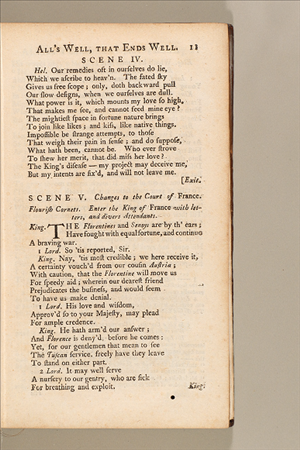 All's Well, that Ends Well. 11
SCENE IV.
Hel. Our remedies oft in ourselves do lie,
Which we ascribe to heav'n. The fated sky
Gives us free scope; only, doth backward pull
Our slow designs, when we ourselves are dull.
What power is it, which mounts my love so high,
That makes me see, and cannot feed mine eye?
The mightiest space in fortune nature brings
To join like likes; and kiss, like native things.
Impossible be strange attempts, to those
That weigh their pain in sense; and do suppose,
What hath been, cannot be. Who ever strove
To shew her merit, that did miss her love?
The King's disease — my project may deceive me,
But my intents are fix'd, and will not leave me.
[Exit.
SCENE V. Changes to the Court of France.
Flourish Cornets. Enter the King of France with letters, and divers Attendants.
King. THE Florentines and Senoys are by th' ears;
Have fought with equal fortune, and continue
A braving war.
1 Lord. So 'tis reported, Sir.
King. Nay, 'tis most credible; we here receive it,
A certainty vouch'd from our cousin Austria;
With caution, that the Florentine will move us
For speedy aid; wherein our dearest friend
Prejudicates the business, and would seem
To have us make denial.
1 Lord. His love and wisdom,
Approv'd so to your Majesty, may plead
For ample credence.
King. He hath arm'd our answer;
And Florence is deny'd, before he comes:
Yet, for our gentlemen that mean to see
The Tuscan service, freely have they leave
To stand on either part.
2 Lord. It may well serve
A nursery to our gentry, who are sick
For breathing and exploit. King.